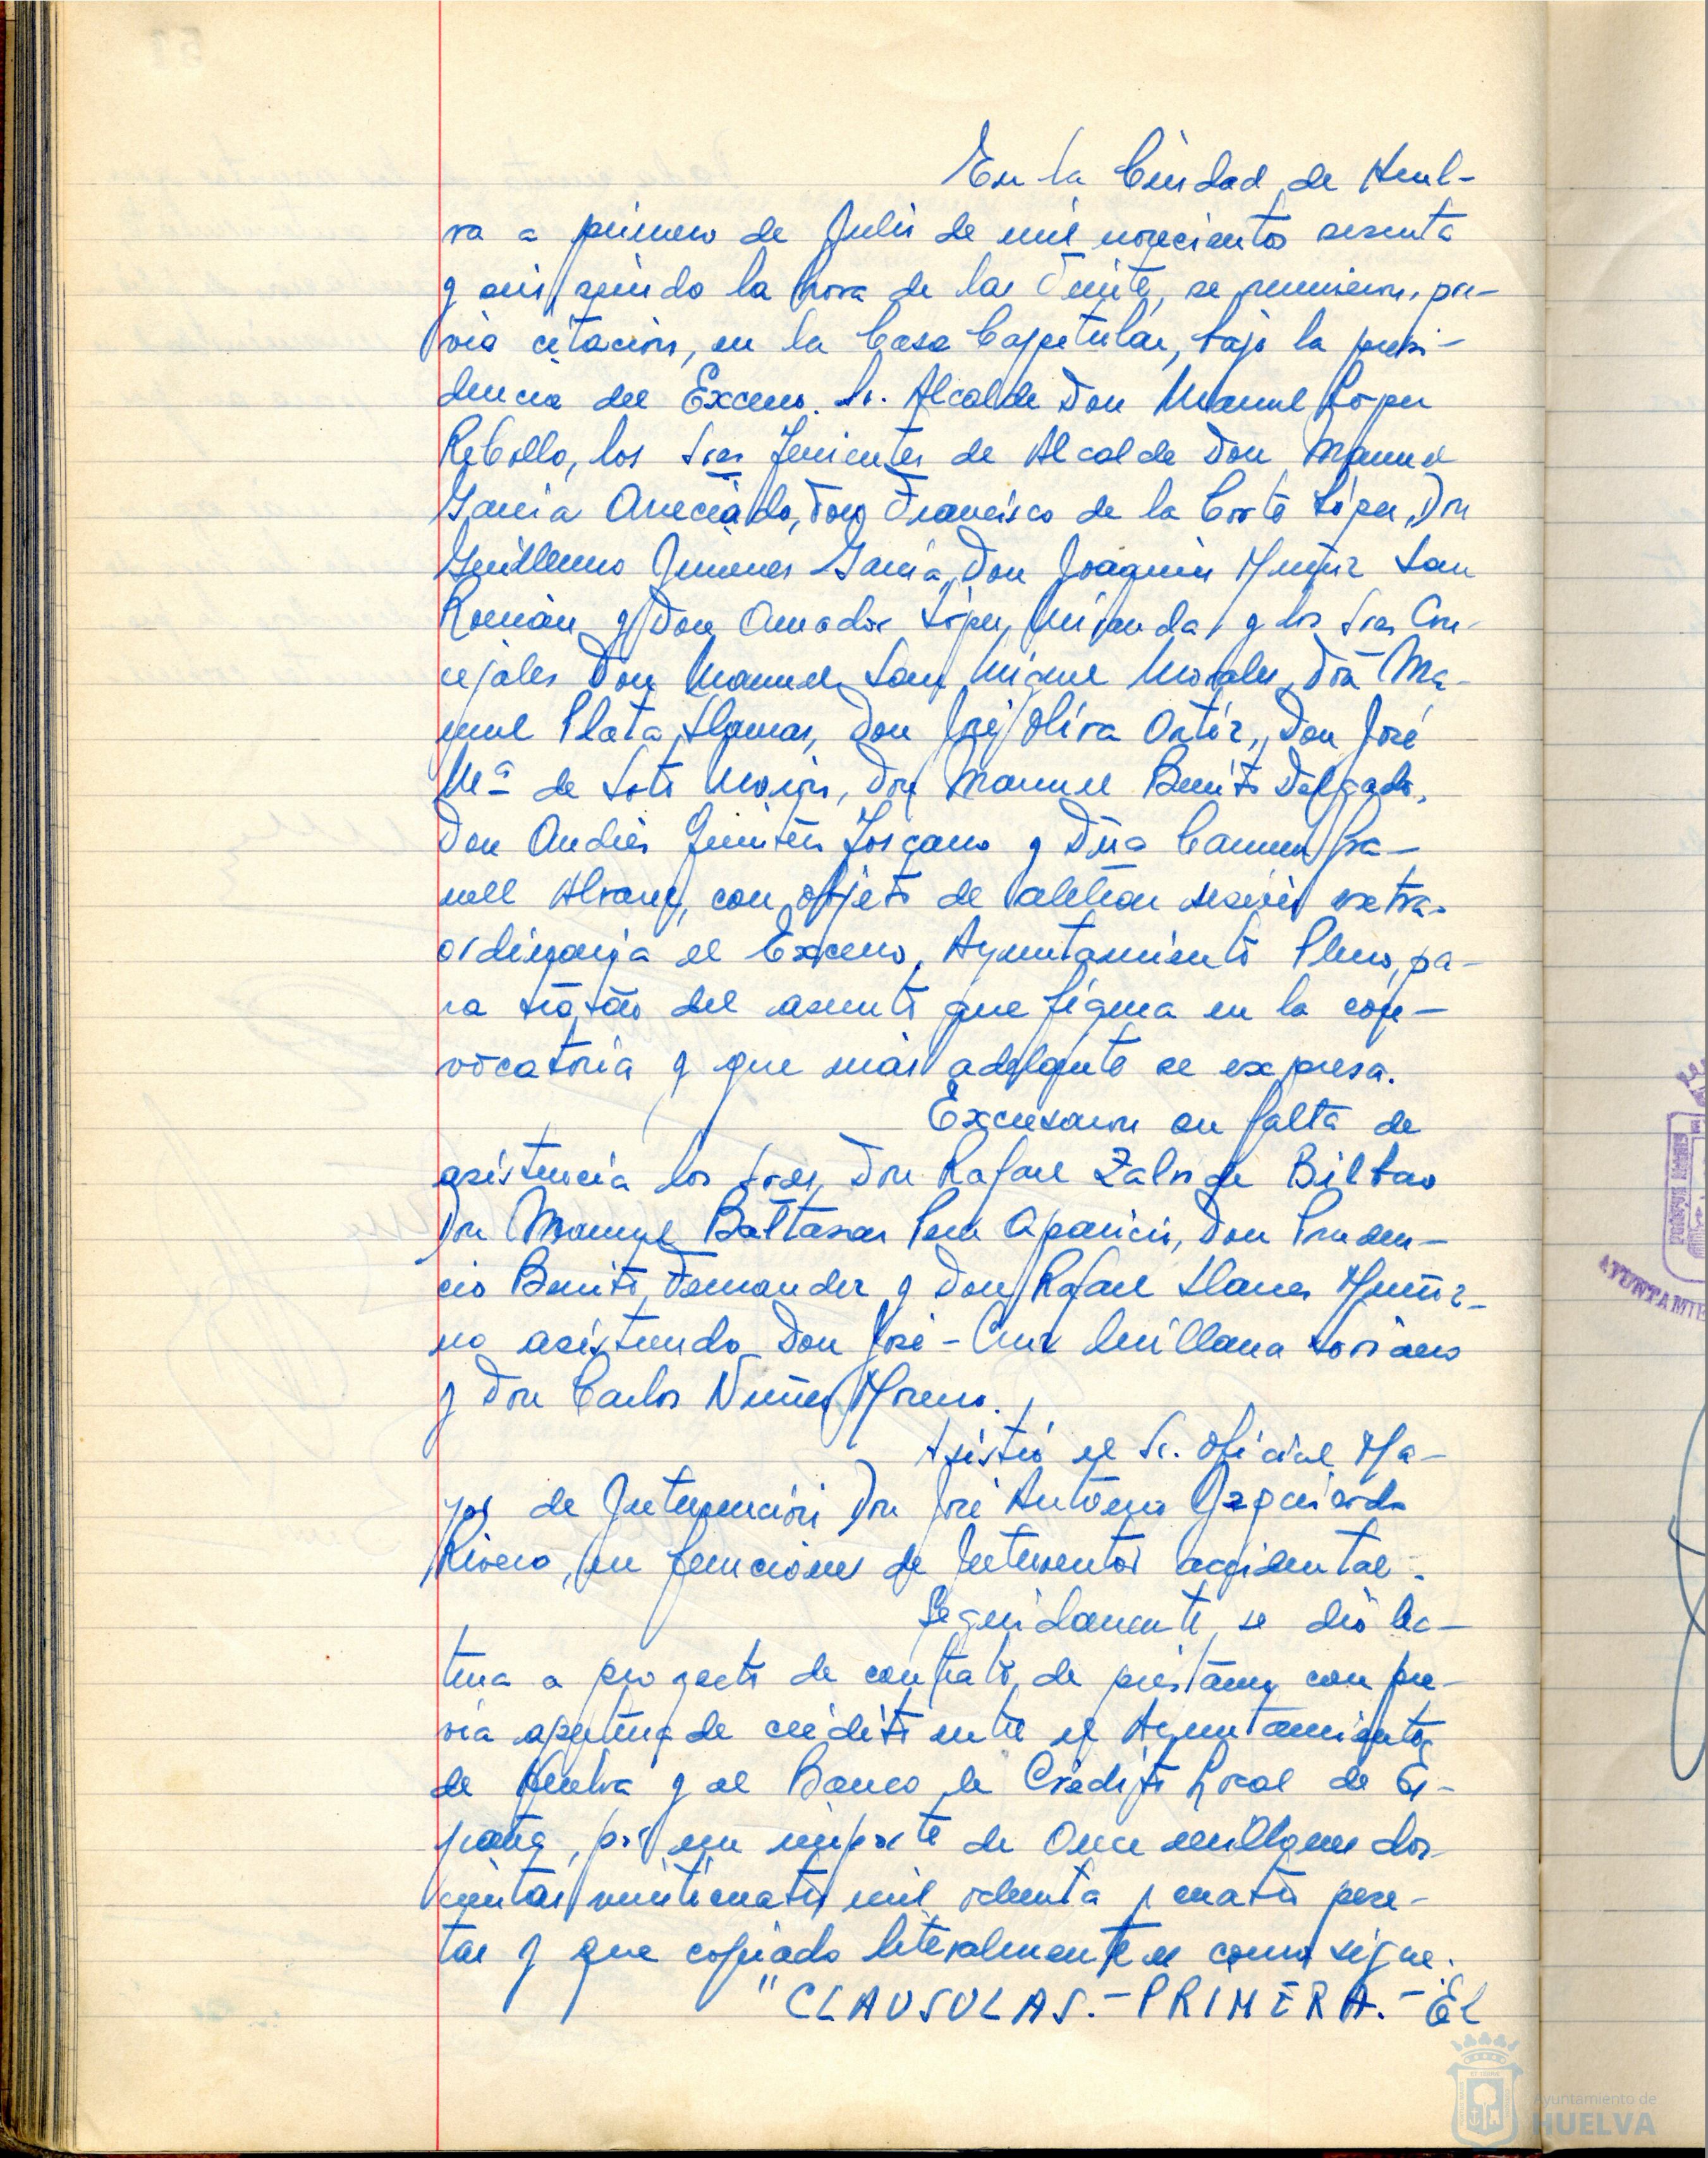 En la Ciudad de Huel-
va a primero de Julio de mil novecientos sesenta
y seis, siendo la hora de las veinte, se reunieron, pre-
via citación, en la Casa Capitular, bajo la presi-
dencia del Excmo. Sr. Alcalde Don Manuel López
Rebollo, los Sres Tenientes de Alcalde Don Manuel
García Arreciado, Don Francisco de la Corte López, Don
Guillermo Jimenez García, Don Joaquin Muñiz San
Román y Don Amador López Miranda, y los Sres Con-
cejales Don Manuel San Miguel Morales, Don Ma-
nuel Plata Llamas, Don José Oliva Ortíz, Don José
Mª de Soto Morón, Don Manuel Benito Delgado,
Don Andrés Quintero Toscano y Dña Carmen Gra-
nell Alvarez, con objeto de celebrar sesión extra-
ordinaria el Excmo. Ayuntamiento Pleno, pa-
ra tratar del asunto que figura en la con-
vocatoria y que más adelante se expresa.
Excusaron su falta de
asistencia los Sres. Don Rafael Zalvide Bilbao
Don Manuel Baltasar Pere Aparicio, Don Pruden-
cio Benito Fernandez y Don Rafael Llanes Muñiz-
no asistiendo Don José-Cruz Soriano
y Don Carlos Nuñez Moreno.
Asistió el Sr. Oficial Ma-
yor de Intervención Don José Antonio Izquierdo
Rivero, en funciones de Interventor accidental.
Seguidamente, se dió lec-
tura a proyecto de contrato de préstamo con pre-
via apertura de crédito entre el Ayuntamiento
de Huelva y el Banco de Crédito Local de Es-
paña, por un importe de Once millones dos-
cientas veinticuatro mil ochenta y cuatro pese-
tas y que copiado literalmente es como sigue:
"CLAUSULAS.-PRIMERA.-El
PORTUS MARIS
AYUNTAMIE
Ayuntamiento de
HUELVA